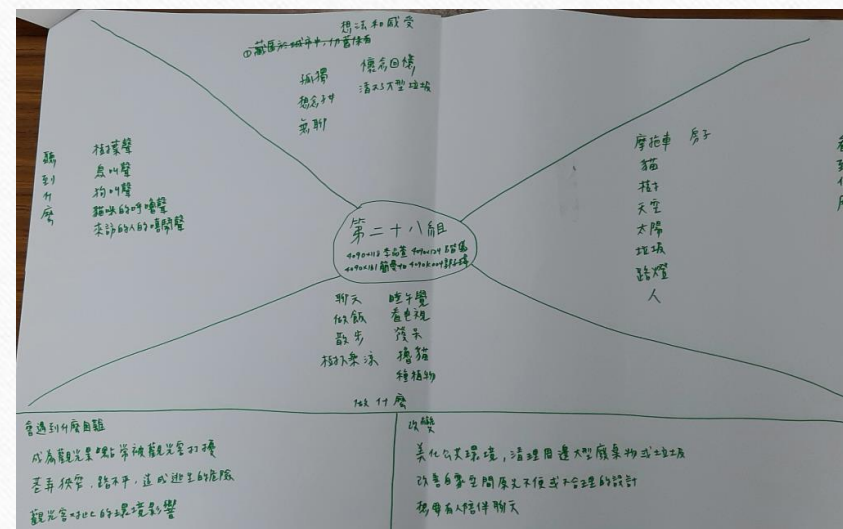 想法和感受
①藏匿於城市中，仍舊保有
孤獨 懷念回憶
想念子女 清不了大型垃圾
無聊
聽到什麼
樹葉聲
鳥叫聲
狗叫聲
貓咪的呼嚕聲
來訪的人的喧鬧聲
摩拖車 房子
貓
樹
天空
太陽
垃圾
路燈
人
第二十八組
聊天 睡午覺
做飯 看電視
散步 發呆
樹下乘涼 擼貓
種植物
做什麼
會遇到什麼困難
成為觀光景點常被觀光客打擾
巷弄狹窄、路不平，造成逃生的危險
觀光客對此的環境影響
改變
美化公共環境，清理周邊大型廢棄物或垃圾
改善自家空間原先不便或不合理的設計
想要有人陪伴聊天